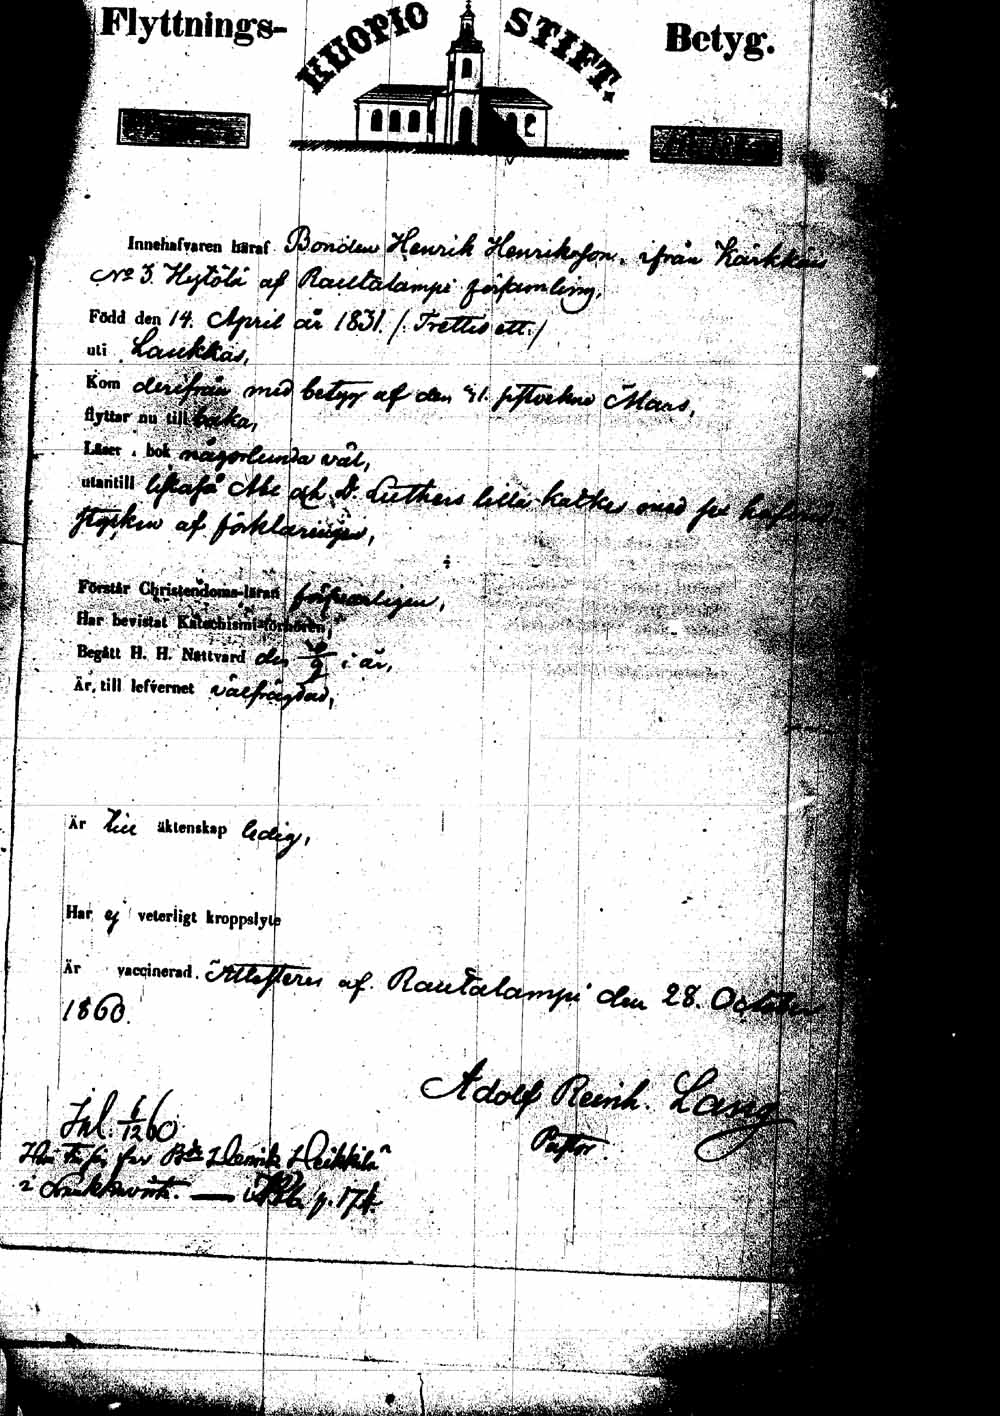 Flyttnings- KUOPIO STIFT. Betyg.
Innehafvaren häraf Bonden Henrik Henriksson, ifrån Kärkkäis
No 3 Hytölä af Rautalampi församling,
Född den 14. April år 1831. /: Trettio ett :/
uti Laukkas,
Kom derifrån med betyg af den 21. sistvekne Mars,
flyttar nu till baka,
Läser i bok någorlunda väl,
utantill Abc och D. Luthers lilla katkes med sex
stycken af förklaringen,
Förstår Christendoms-läran försvarligen,
Har bevistat Katechismi-förhören,
Begått H. H. Nattvard den i år,
Är, till lefvernet välfrägdad,
Är till äktenskap ledig,
Har ej veterligt kroppslyte
Är vaccinerad. Attesteras af Rautalampi den 28. October
1860.
Adolf Reinh. Lang
Pastor.
Inl. 6/12 60
Henrik Heikkilä
i p. 174.